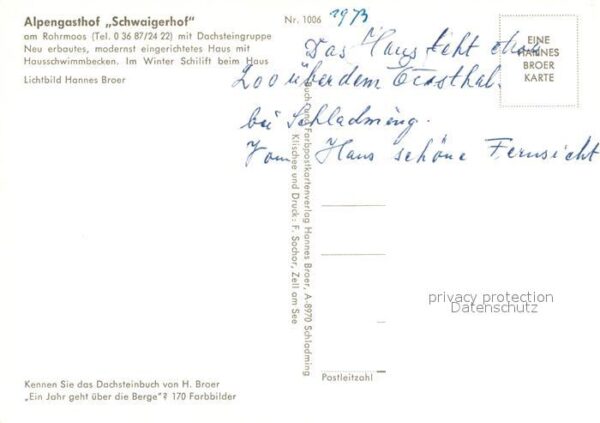 Alpengasthof „Schwaigerhof"
am Rohrmoos (Tel. 0 36 87/24 22) mit Dachsteingruppe
Neu erbautes, modernst eingerichtetes Haus mit
Hausschwimmbecken. Im Winter Schilift beim Haus
Lichtbild Hannes Broer
Nr. 1006
1973
EINE
HANNES
BROER
KARTE
Das Haus steht etwa
200 über dem Ennsthal.
bei Schladming.
Vom Haus schöne Fernsicht
Buch- und Farbpostkartenverlag Hannes Broer, A-8970 Schladming
Klischee und Druck: F. Sochor, Zell am See
privacy protection
Datenschutz
Postleitzahl
Kennen Sie das Dachsteinbuch von H. Broer
„Ein Jahr geht über die Berge"? 170 Farbbilder